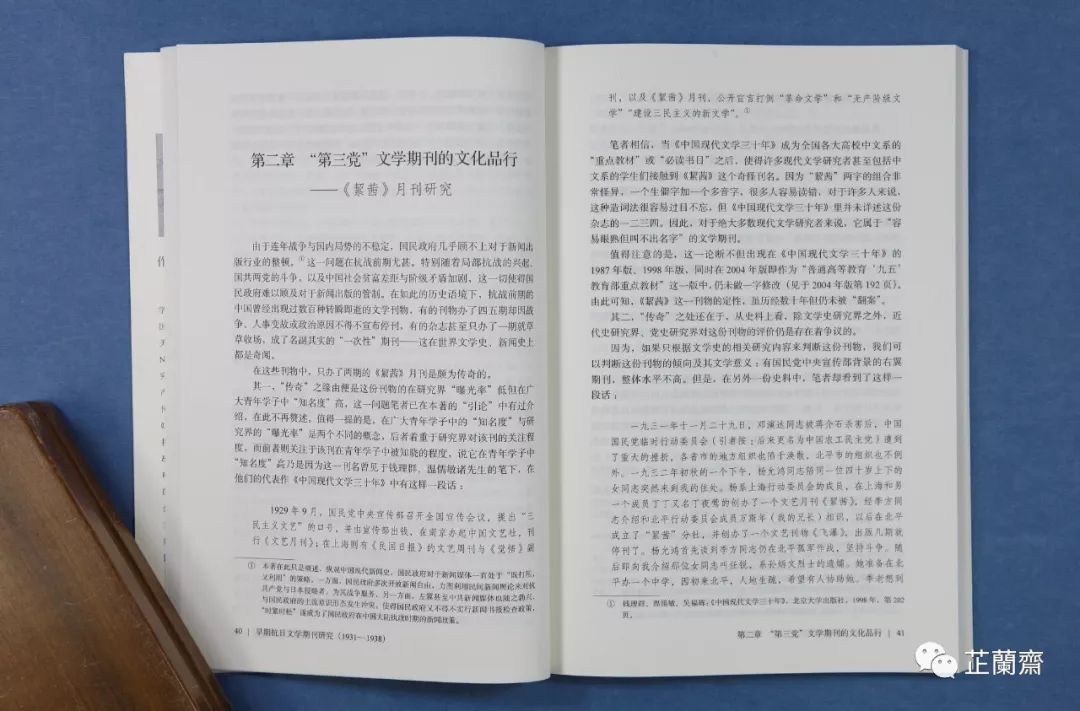 第二章 “第三党”文学期刊的文化品行
——《絜茜》月刊研究
由于连年战争与国内局势的不稳定，国民政府几乎顾不上对于新闻出
版行业的整顿。①这一问题在抗战前期尤甚。特别随着局部抗战的兴起、
国共两党的斗争，以及中国社会贫富差距与阶级矛盾加剧，这一切使得国
民政府难以顾及对于新闻出版的管制。在如此的历史语境下，抗战前期的
中国曾经出现过数百种转瞬即逝的文学刊物，有的刊物办了四五期却因战
争、人事变故或政治原因不得不宣布停刊，有的杂志甚至只办了一期就草
草收场，成了名副其实的“一次性”期刊——这在世界文学史、新闻史上
都是奇闻。
在这些刊物中，只办了两期的《絜茜》月刊是颇为传奇的。
其一，“传奇”之缘由便是这份刊物的在研究界“曝光率”低但在广
大青年学子中“知名度”高，这一问题笔者已在本著的“引论”中有过介
绍，在此不再赘述，值得一提的是，在广大青年学子中的“知名度”与研
究界的“曝光率”是两个不同的概念，后者着重于研究界对该刊的关注程
度，而前者则关注于该刊在青年学子中被知晓的程度，说它在青年学子中
“知名度”高乃是因为这一刊名曾见于钱理群、温儒敏诸先生的笔下，在
他们的代表作《中国现代文学三十年》中有这样一段话：
1929年9月，国民党中央宣传部召开全国宣传会议，提出“三
民主义文艺”的口号，并由宣传部出钱，在南京办起中国文艺社，刊
行《文艺月刊》；在上海则有《民国日报》的文艺周刊与《觉悟》副
① 本著在此只是概述，纵观中国现代新闻史，国民政府对于新闻媒体一直处于“既打压，
又利用”的策略，一方面，国民政府多次开放新闻自由，力图利用民间新闻舆论来对抗
共产党与日本侵略者，为其战争服务，另一方面，左翼甚至中共新闻媒体也随之勃兴，
与国民政府的主流意识形态发生冲突，使得国民政府又不得不实行新闻书报检查政策，
“时紧时松”遂成为了国民政府在中国大陆执政时期的新闻政策。
40 | 早期抗日文学期刊研究（1931—1938）
刊，以及《絜茜》月刊，公开宣言打倒“革命文学”和“无产阶级文
学”“建设三民主义的新文学”。①
笔者相信，当《中国现代文学三十年》成为全国各大高校中文系的
“重点教材”或“必读书目”之后，使得许多现代文学研究者甚至包括中
文系的学生们接触到《絜茜》这个奇怪刊名。因为“絜茜”两字的组合非
常怪异，一个生僻字加一个多音字，很多人容易读错，对于许多人来说，
这种造词法很容易过目不忘，但《中国现代文学三十年》里并未详述这份
杂志的一二三四。因此，对于绝大多数现代文学研究者来说，它属于“容
易眼熟但叫不出名字”的文学期刊。
值得注意的是，这一论断不但出现在《中国现代文学三十年》的
1987年版、1998年版，同时在2004年版即作为“普通高等教育‘九五’
教育部重点教材”这一版中，仍未做一字修改（见于2004年版第192页）。
由此可知，《絜茜》这一刊物的定性，虽历经数十年但仍未被“翻案”。
其二，“传奇”之处还在于，从史料上看，除文学史研究界之外，近
代史研究界、党史研究界对这份刊物的评价仍是存在着争议的。
因为，如果只根据文学史的相关研究内容来判断这份刊物，我们可
以判断这份刊物的倾向及其文学意义：有国民党中央宣传部背景的右翼
期刊，整体水平不高。但是，在另外一份史料中，笔者却看到了这样一
段话：
一九三一年十一月二十九日，邓演达同志被蒋介石杀害后，中国
国民党临时行动委员会（引者按：后来更名为中国农工民主党）遭到
了重大的挫折，各省市的地方组织也陷于涣散，北平市的组织也不例
外。一九三二年初秋的一个下午，杨允鸿同志陪同一位四十岁上下的
女同志突然来到我的住处。杨系上海行动委员会的成员，在上海和另
一个成员丁丁又名丁夜莺的创办了一个文艺月刊《絜茜》，经李方同
志介绍和北平行动委员会成员万斯年（我的兄长）相识，以后在北平
成立了“絜茜”分社，并创办了一个文艺刊物《飞瀑》，出版几期就
停刊了。杨允鸿首先谈到李方同志仍在北平孤军作战，坚持斗争。随
后即向我介绍那位女同志叫任锐，系孙炳文烈士的遗孀。她准备在北
平办一个中学，因初来北平，人地生疏，希望有人协助她。李老想到
① 钱理群、温儒敏、吴福辉：《中国现代文学三十年》，北京大学出版社，1998年，第202
页。
第二章 “第三党”文学期刊的文化品行 | 41
芷蘭齋